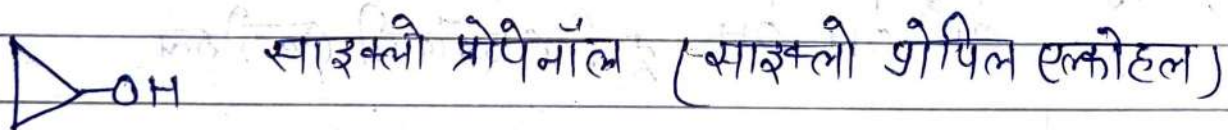 -OH साइक्लो प्रोपेनॉल (साइक्लो प्रोपिल एल्कोहल)